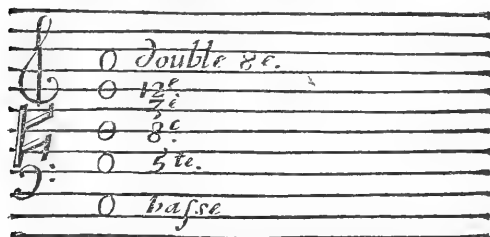 double 8e.
12e
7e
8e.
5te.
baſse